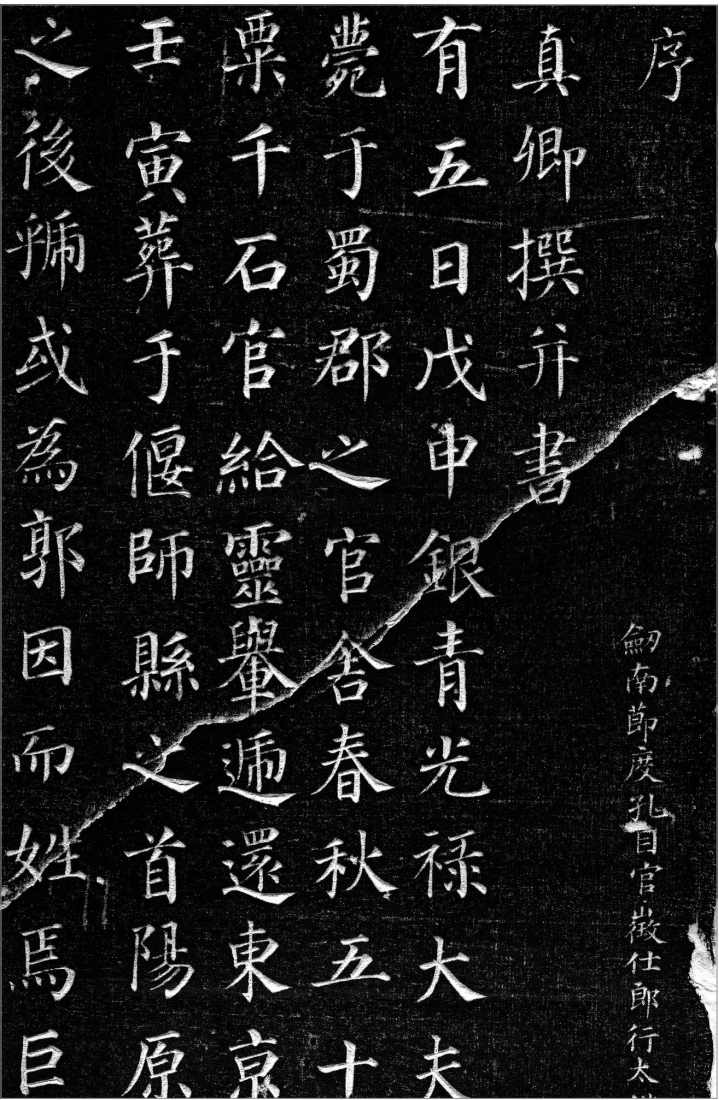 序
劒南節度孔目官徵仕郎行太
真卿撰并書
有五日戊申銀青光禄大夫
薨于蜀郡之官舍春秋五十
粟千石官給靈轝遞還東京
壬寅葬于偃師縣之首陽原
之後虢或為郭因而姓焉巨